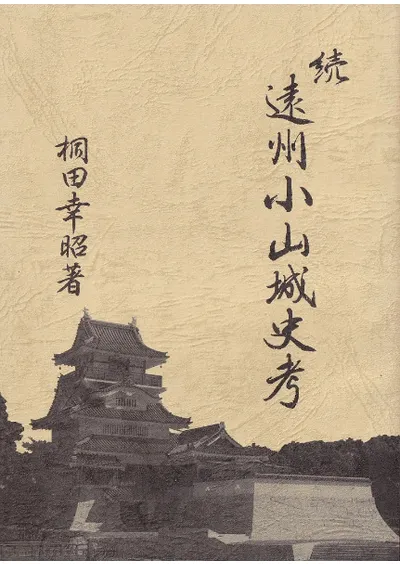 続
遠州小山城史考
桐田幸昭著